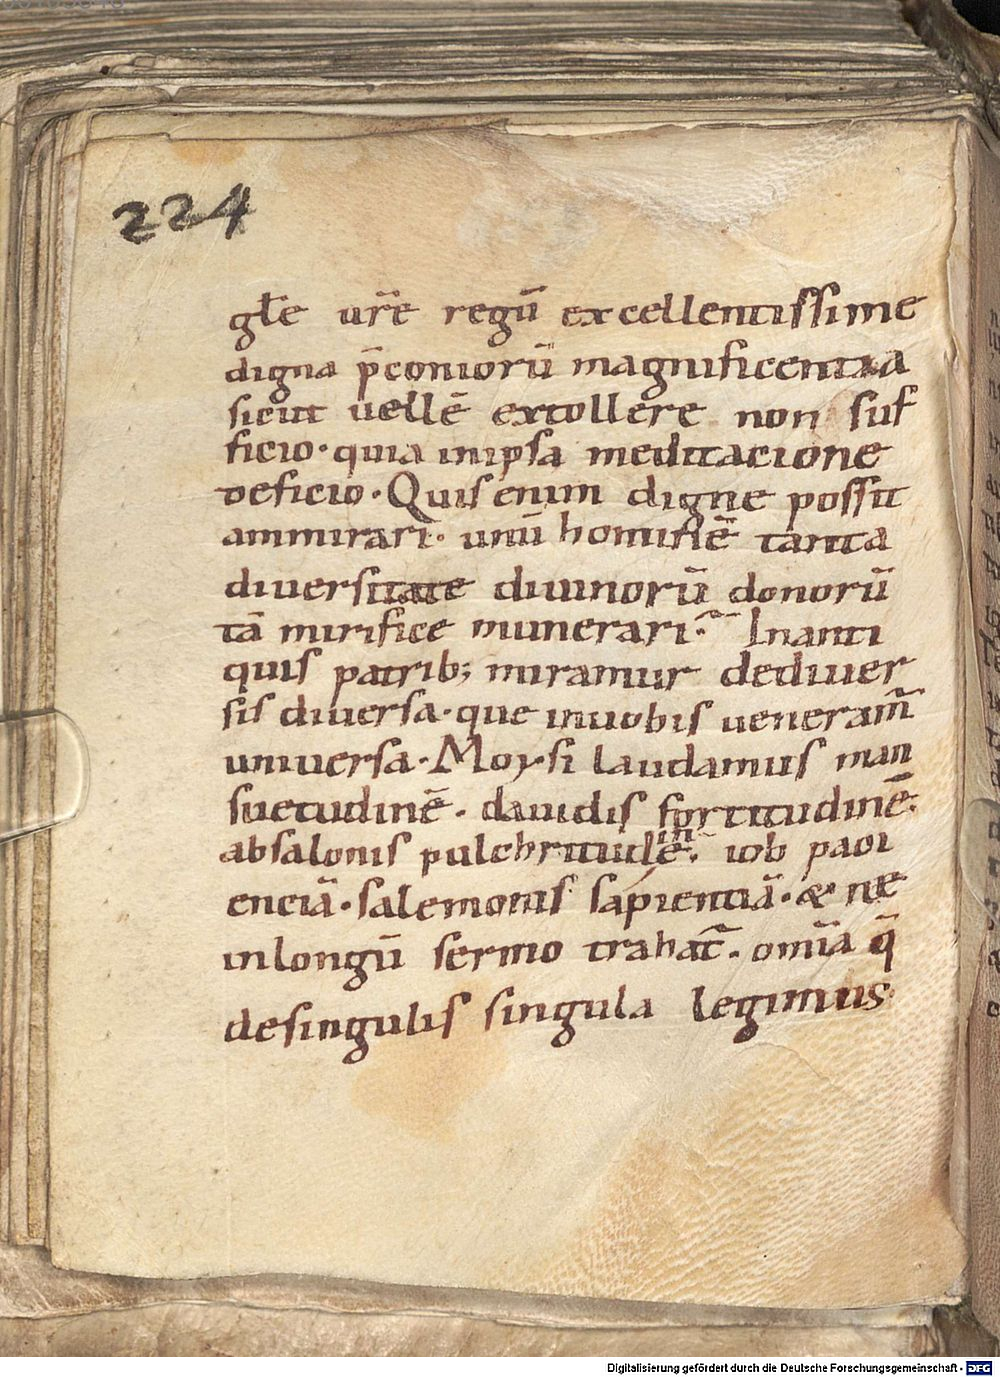 224
głe ur̄e regū excellentissime
digna p̄coniorū magnificentia
sicut uellē extollere non suf
ficio· quia inipsa meditacione
deficio· Quis enim digne possit
ammirari· unū hominē tanta
diuersitate diuinorū donorū
tā mirifice munerari· Inanti
quis patrib; miramur dediuer
sis diuersa· que inuobis ueneram̄
uniuersa· Moysi laudamus man
suetudinē· dauidis fortitudinē·
absalonis pulchritudinē· iob paci
enciā· salemonis sapientiā· & ne
inlongū sermo trahat̄· omīa q̄
desingulis singula legimus
Digitalisierung gefördert durch die Deutsche Forschungsgemeinschaft - DFG